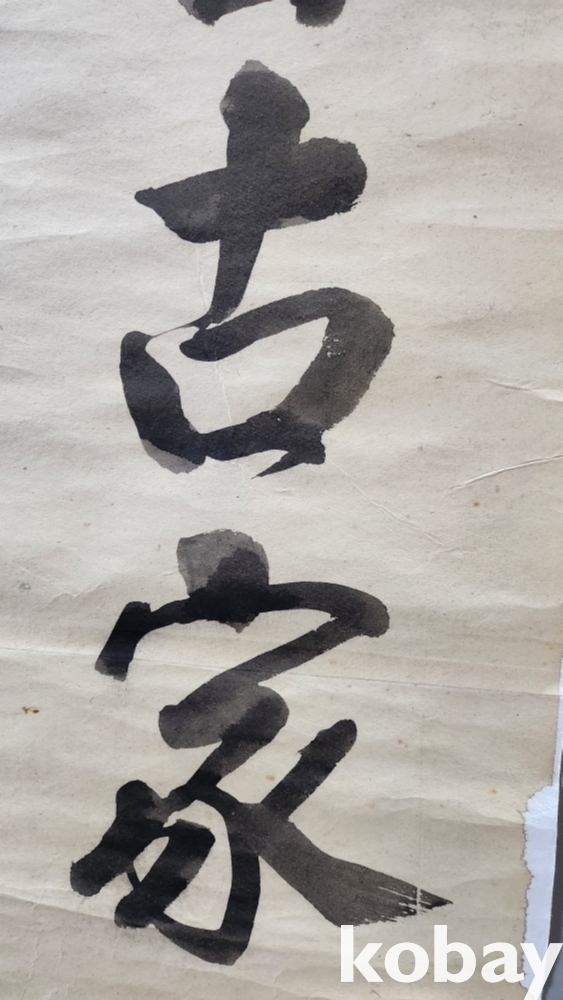 古
家
kobay